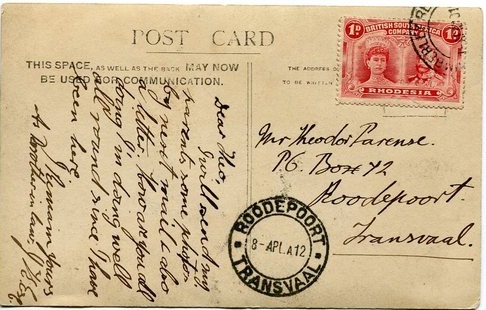 POST CARD
THIS SPACE, AS WELL AS THE BACK MAY NOW
BE USED FOR COMMUNICATION.
THE ADDRESS O
TO BE WRITTEN
1D BRITISH SOUTH AFRICA COMPANY 1D
RHODESIA
Dear Theo,
I will send my
parents some photos
by next mail & also
a letter. How are you all
I'm doing well
all round since I have
been here.
I remain yours
as brother in law
Mr Theodor Parense.
P.O. Box 42
Roodepoort.
Transvaal.
ROODEPOORT
8-APL.A12
TRANSVAAL